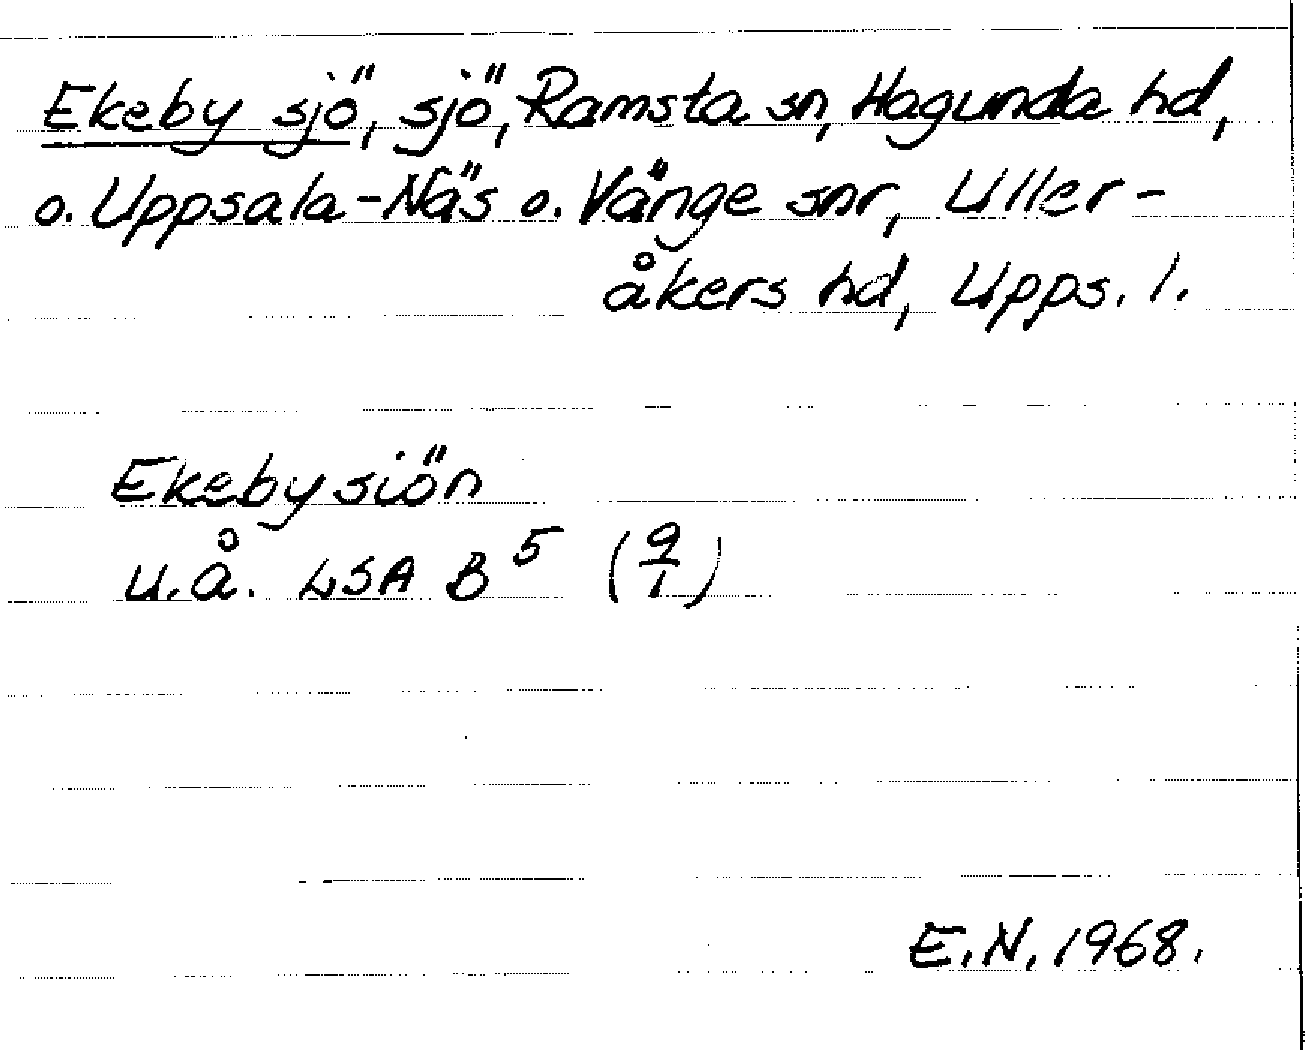 Ekeby sjö, sjö, Ramsta sn, Hagunda hd,
o. Uppsala-Näs o. Vänge snr, Uller-
åkers hd, Upps. l.
Ekeby siön
u.å. LSA B⁵ (9/1)
E.N. 1968.